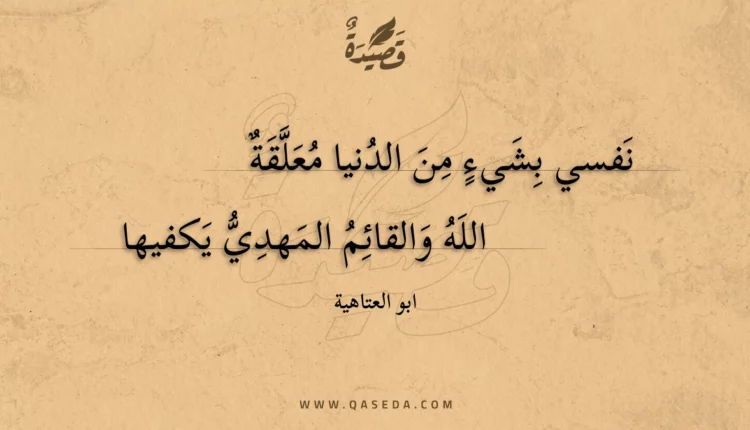 قَصِيْدَةٌ
نَفسي بِشَيءٍ مِنَ الدُنيا مُعَلَّقَةٌ
اللَهُ وَالقائِمُ المَهدِيُّ يَكفيها
ابو العتاهية
WWW.QASEDA.COM